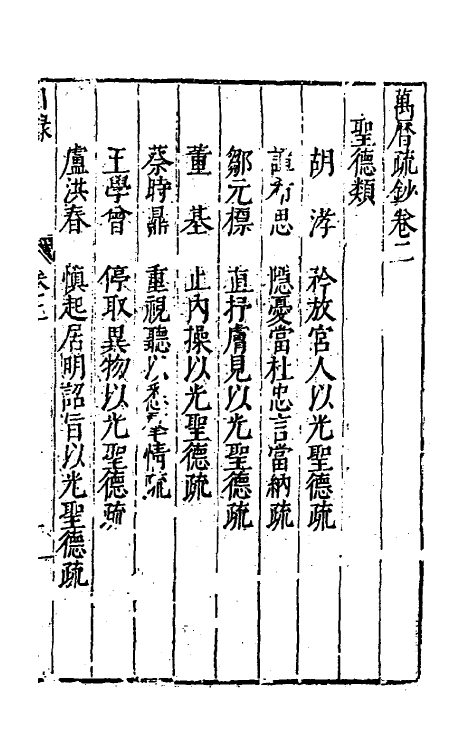 萬曆疏鈔卷二
聖德類
胡涍 矜放宮人以光聖德疏
譚希思 隱憂當杜忠言當納疏
鄒元標 直抒膚見以光聖德疏
董基 止內操以光聖德疏
蔡時鼎 重視聽以悉羣情疏
王學曾 停取異物以光聖德疏
盧洪春 慎起居明詔旨以光聖德疏
目錄 卷二